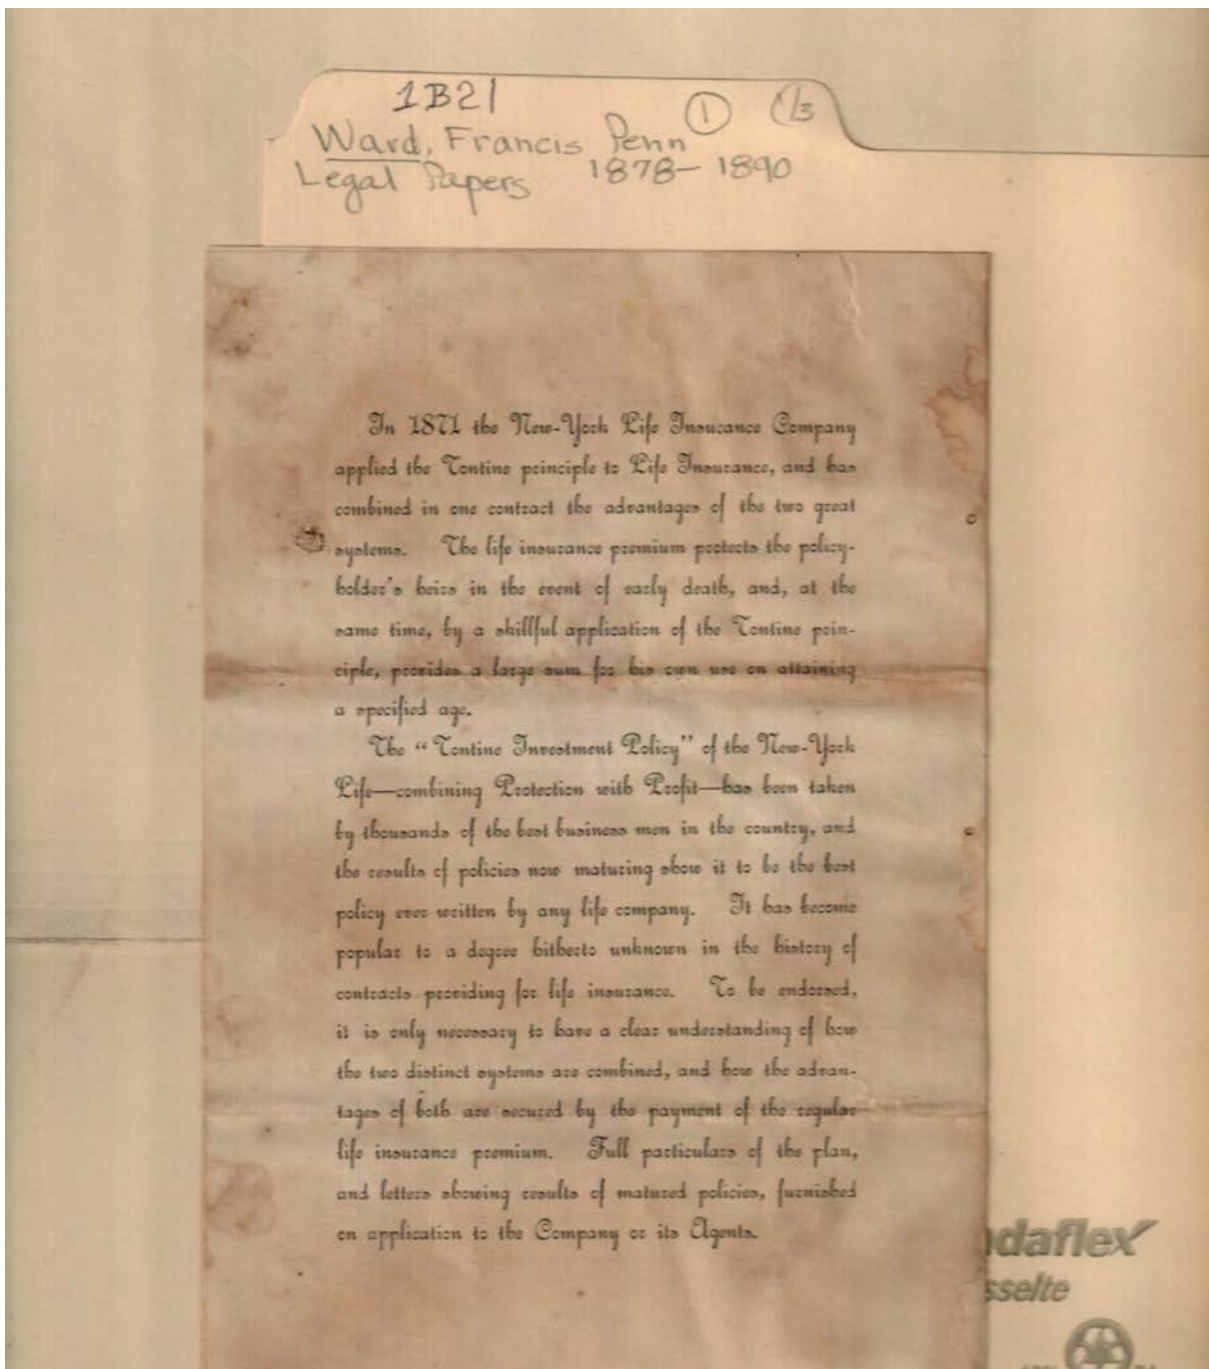 1B21
Ward, Francis Penn 1 1/3
Legal Papers 1878-1890
In 1871 the New-York Life Insurance Company
applied the Tontine principle to Life Insurance, and has
combined in one contract the advantages of the two great
systems. The life insurance premium protects the policy-
holder's heirs in the event of early death, and, at the
same time, by a skillful application of the Tontine prin-
ciple, provides a large sum for his own use on attaining
a specified age.
The "Tontine Investment Policy" of the New-York
Life—combining Protection with Profit—has been taken
by thousands of the best business men in the country, and
the results of policies now maturing show it to be the best
policy ever written by any life company. It has become
popular to a degree hitherto unknown in the history of
contracts providing for life insurance. To be endorsed,
it is only necessary to have a clear understanding of how
the two distinct systems are combined, and how the advan-
tages of both are secured by the payment of the regular
life insurance premium. Full particulars of the plan,
and letters showing results of matured policies, furnished
on application to the Company or its Agents.
daflex
sselte